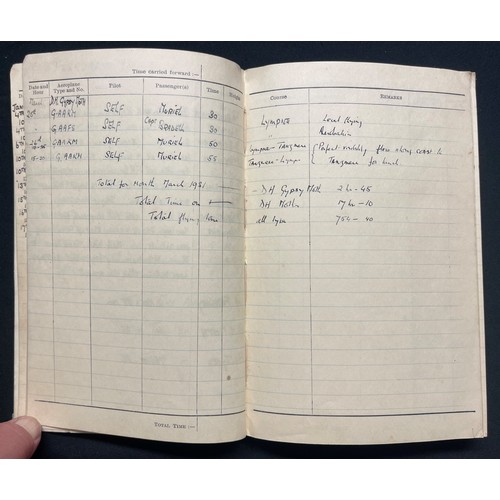 Time carried forward :—
Date and Hour Aeroplane Type and No. Pilot Passenger(s) Time Height Course Remarks
DH Gypsy Moth
21st G-AARM SELF MURIEL 30 LYMPNE Local flying
" G-AAFS SELF Capt 30 "
G-AARM SELF MURIEL 50 Lympne - Tangmere Perfect visibility flew along coast to
G-AARM SELF MURIEL 55 Tangmere - Lympne Tangmere for lunch.
Total for month March 1931 — DH Gypsy Moth 2 hr - 45
Total Time on DH Moth 17 hr - 10
Total flying time all types 754 - 40
Total Time :—